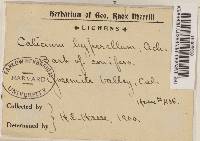 Herbarium of Geo. Knox Merrill
LICHENS
Calicium hyperellum, Ach.
Bark of conifers.
Yosemite Valley, Cal.
FARLOW HERBARIUM
HARVARD
UNIVERSITY
Collected by
Determined by
H.E. Hasse, 1900.